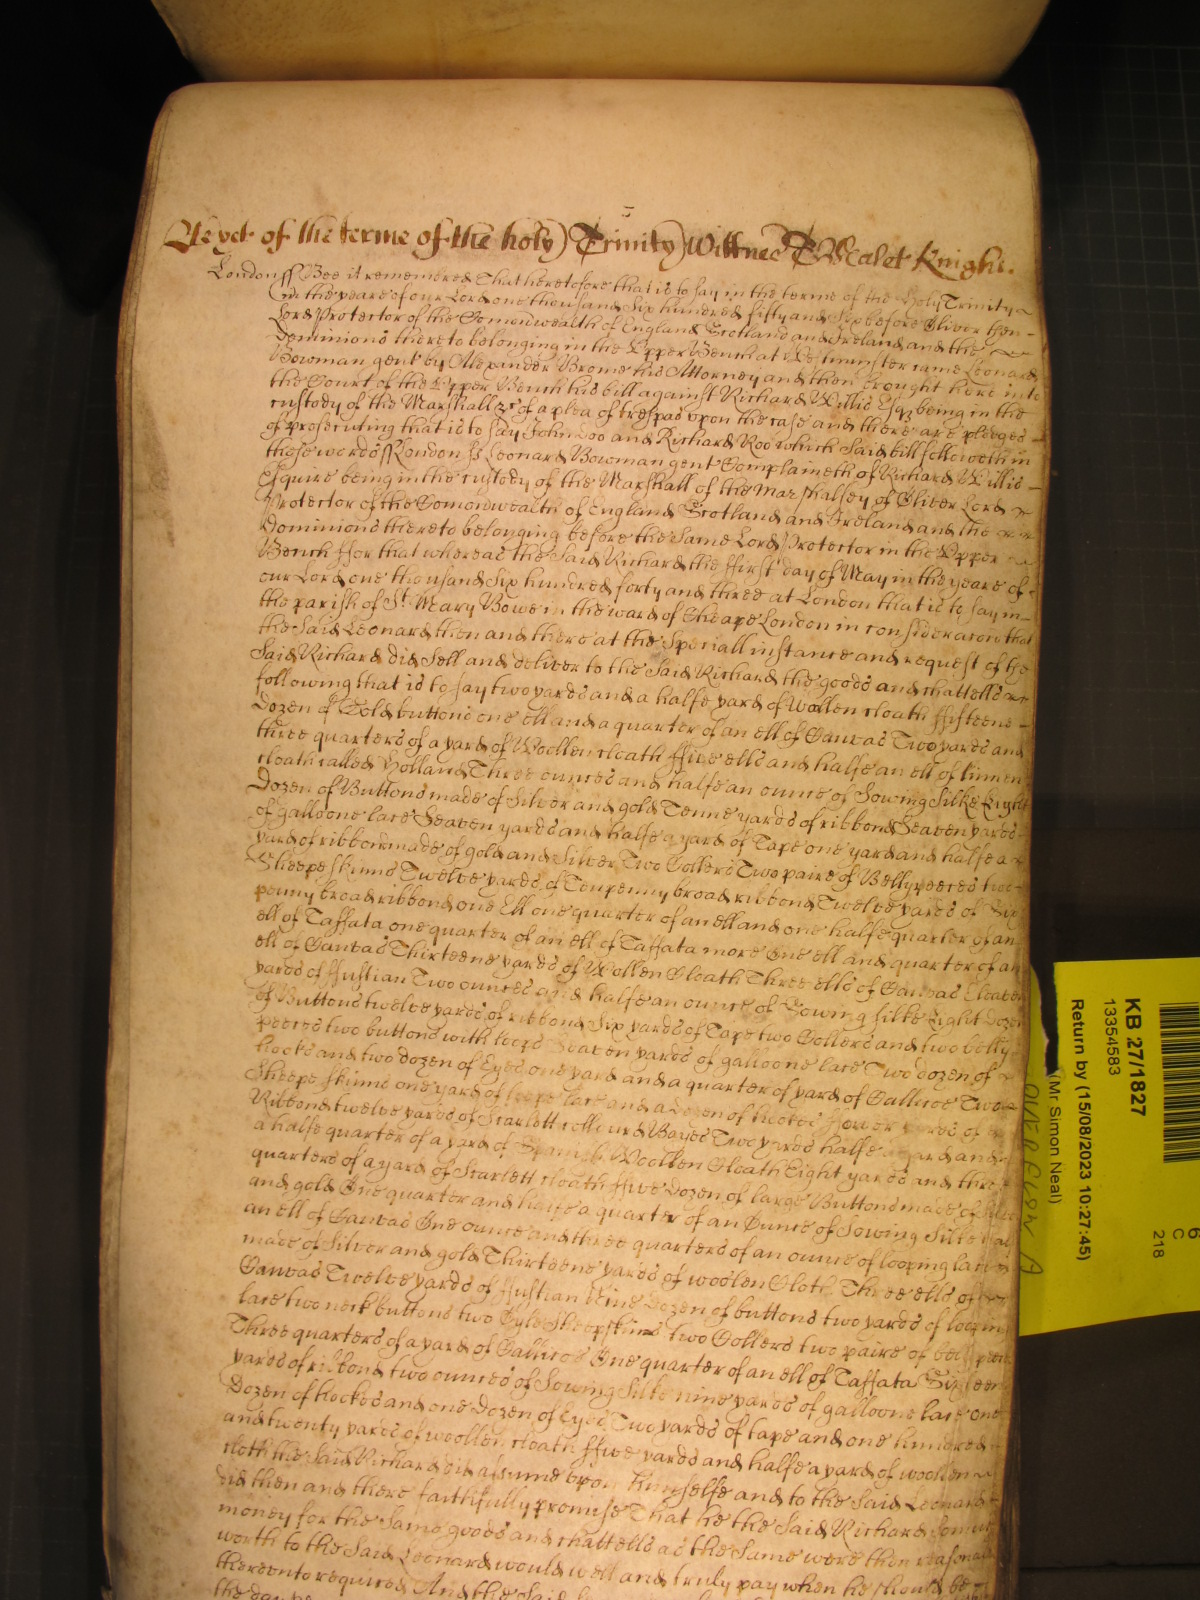 As yet of the terme of the holy Trinity Wittnes P Wealet Knight.
London ss Bee it remembred That heretofore that is to say in the terme of the Holy Trinity
in the yeare of our Lord one thousand Six hundred fifty and Six before Oliver then
Lord Protector of the Comonwealth of England Scotland and Ireland and the
Dominions thereto belonging in the Upper Bench at Westminster came Leonard
Bowman gent by Alexander Brome his Attorney and then brought here into
the Court of the Upper Bench his bill against Richard Willis Esqr being in the
custody of the Marshall &c of a plea of trespas upon the case and there are pledges
of prosecuting that is to say John Doo and Richard Roo which Said bill followeth in
these words ss London ss Leonard Bowman gent Complaineth of Richard Willis
Esquire being in the custody of the Marshall of the Marshalsey of Oliver Lord
Protector of the Comonwealth of England Scotland and Ireland and the
Dominions thereto belonging before the Same Lord Protector in the Upper
Bench ffor that whereas the Said Richard the ffirst day of May in the yeare of
our Lord one thousand Six hundred forty and three at London that is to say in
the parish of St Mary Bowe in the ward of Cheape London in consideracon that
the Said Leonard then and there at the Speciall instance and request of the
Said Richard did Sell and deliver to the Said Richard the goods and chattells
following that is to say two yards and a halfe yard of Wollen cloath ffifteene
Dozen of Gold buttons one ell and a quarter of an ell of Canvas Two yards and
three quarters of a yard of Woollen cloath ffive ells and halfe an ell of linnen
cloath called Holland Three ounces and halfe an ounce of Sowing Silke Eight
Dozen of Buttons made of Silver and gold Tenne yards of ribbond Seaven yards
of galloone lace Seaven yards and halfe a yard of Tape one yard and halfe a
yard of ribbon made of gold and Silver Two Collers Two paire of Bellypeeces two
Sheepe skinns Twelve yards of Tenpenny broad ribbond Twelve yards of Six
penny broad ribbond one Ell one quarter of an ell and one halfe quarter of an
ell of Taffata one quarter of an ell of Taffata more One ell and quarter of an
ell of Canvas Thirteene yards of Wollen Cloath Three ells of Canvas Eleaven
yards of ffustian Two ounces and halfe an ounce of Sowing silke Eight dozen
of Buttons twelve yards of ribbond Six yards of Tape two Collers and two belly
peeces two buttons with loops Seaven yards of galloone lace Two dozen of
hookes and two dozen of Eyes one yard and a quarter of yard of Callicoe Two
Sheepe skinns one yard of loope lace and a dozen of hookes ffower yards of
Ribbond twelve yards of Scarlett collourd Bayes Two yards halfe a yard and
a halfe quarter of a yard of Spanish Woollen Cloath Eight yards and three
quarters of a yard of Scarlett cloath ffive dozen of large Buttons made of Silver
and gold One quarter and halfe a quarter of an Ounce of Sowing Silke
an ell of Canvas One ounce and three quarters of an ounce of looping lace
made of Silver and gold Thirteene yards of woolen Cloth Three ells of
Canvas Twelve yards of ffustian Nine dozen of buttons two yards of looping
lace two neck buttons two Sheepskins two Collers two paire of belly peeces
Three quarters of a yard of Callicoe One quarter of an ell of Taffata Sixteen
yards of ribbond two ounces of Sowing Silke nine yards of galloone lace one
Dozen of hookes and one Dozen of Eyes Two yards of tape and one hundred
and twenty yards of woollen cloath ffive yards and halfe a yard of woollen
cloth the Said Richard did assume upon himselfe and to the Said Leonard
did then and there faithfully promise That he the Said Richard Somuch
money for the Same goods and chattells as the Same were then reasonably
worth to the Said Leonard would well and truly pay when he should be
thereunto required And the Said
the day
KB 27/1827
13354583
Return by (15/08/2023 10:27:45)
(Mr Simon Neal)
218